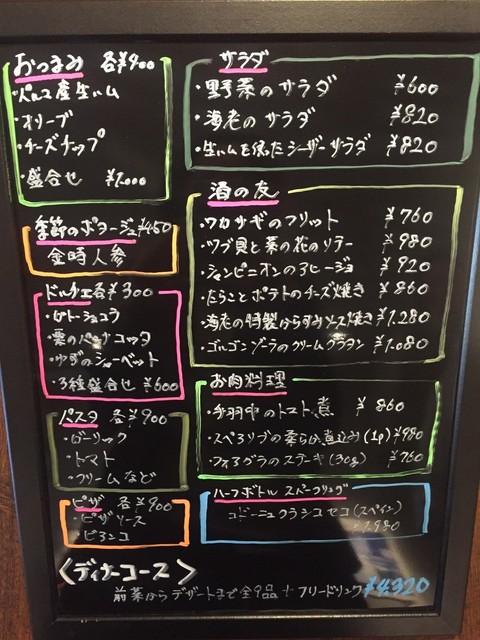 おつまみ 各¥900
・パルマ産生ハム
・オリーブ
・チーズナップ
・盛合せ ¥1,000
季節のポタージュ¥450
金時人参
ドルチェ各¥300
・ガトーショコラ
・栗のパンナコッタ
・ゆずのシャーベット
・3種盛合せ ¥600
パスタ 各¥900
・ガーリック
・トマト
・クリームなど
ピザ 各¥900
・ピザソース
・ビアンコ
サラダ
・野菜のサラダ ¥600
・海老のサラダ ¥820
・生ハムを使ったシーザーサラダ ¥820
酒の友
・ワカサギのフリット ¥760
・ツブ貝と菜の花のソテー ¥980
・シャンピニオンのアヒージョ ¥920
・たらことポテトのチーズ焼き ¥860
・海老の特製からすみソース焼き¥1,280
・ゴルゴンゾーラのクリームグラタン ¥1,080
お肉料理
・手羽中のトマト煮 ¥860
・スペアリブの柔らか煮込み(1p)¥980
・フォアグラのステーキ(30g) ¥760
ハーフボトル スパークリング
コドーニュクラシコセコ(スペイン)
¥1,980
<ディナーコース>
前菜からデザートまで全9品+フリードリンク¥4,320